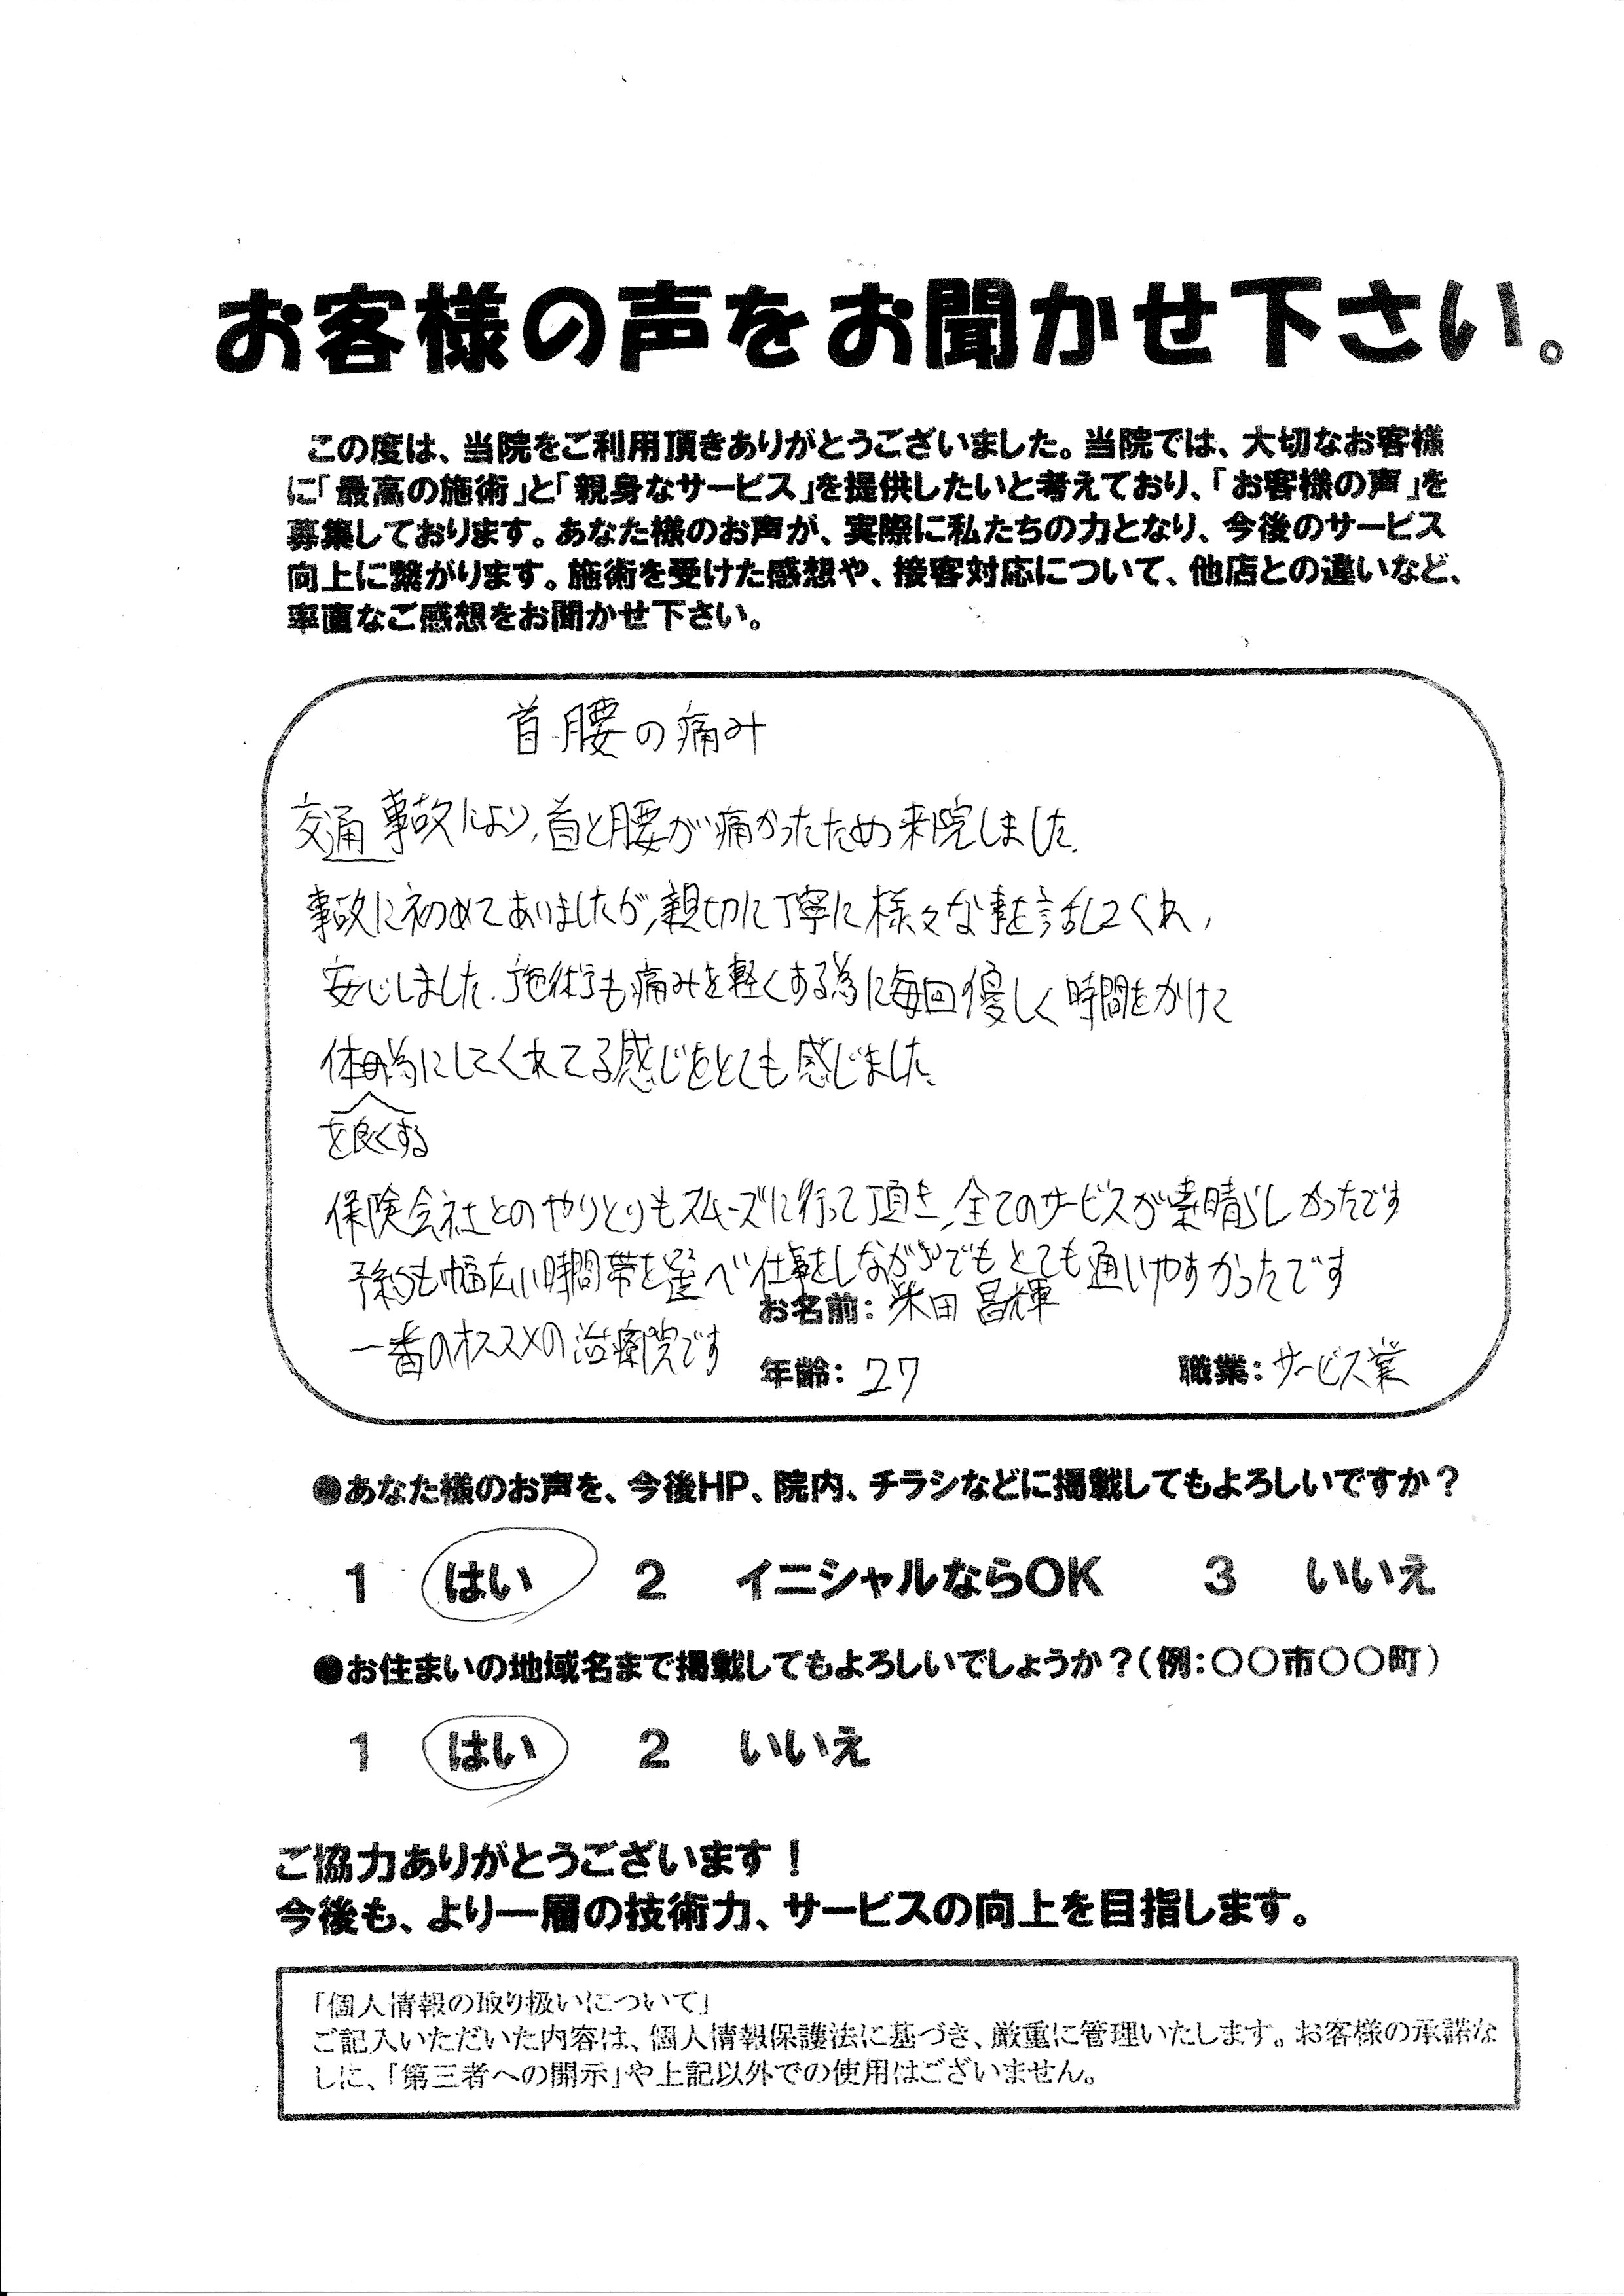 お客様の声をお聞かせ下さい。
この度は、当院をご利用頂きありがとうございました。当院では、大切なお客様
に「最高の施術」と「親身なサービス」を提供したいと考えており、「お客様の声」を
募集しております。あなた様のお声が、実際に私たちの力となり、今後のサービス
向上に繋がります。施術を受けた感想や、接客対応について、他店との違いなど、
率直なご感想をお聞かせ下さい。
首・腰の痛み
交通事故により、首と腰が痛かったため来院しました。
事故に初めてあいましたが、親切に丁寧に様々な事を話してくれ、
安心しました。施術も痛みを軽くする為に毎回優しく時間をかけて
体為にしてくれてる感じをとても感じました。
を良くする
保険会社とのやりとりもスムーズに行って頂き、全てのサービスが素晴らしかったです
予約も幅広い時間帯を選べ仕事をしながらでもとても通いやすかったです
一番のオススメの治療院です
お名前：柴田 昌輝
年齢：27 職業：サービス業
●あなた様のお声を、今後HP、院内、チラシなどに掲載してもよろしいですか？
1 はい 2 イニシャルならOK 3 いいえ
●お住まいの地域名まで掲載してもよろしいでしょうか？（例：〇〇市〇〇町）
1 はい 2 いいえ
ご協力ありがとうございます！
今後も、より一層の技術力、サービスの向上を目指します。
「個人情報の取り扱いについて」
ご記入いただいた内容は、個人情報保護法に基づき、厳重に管理いたします。お客様の承諾な
しに、「第三者への開示」や上記以外での使用はございません。